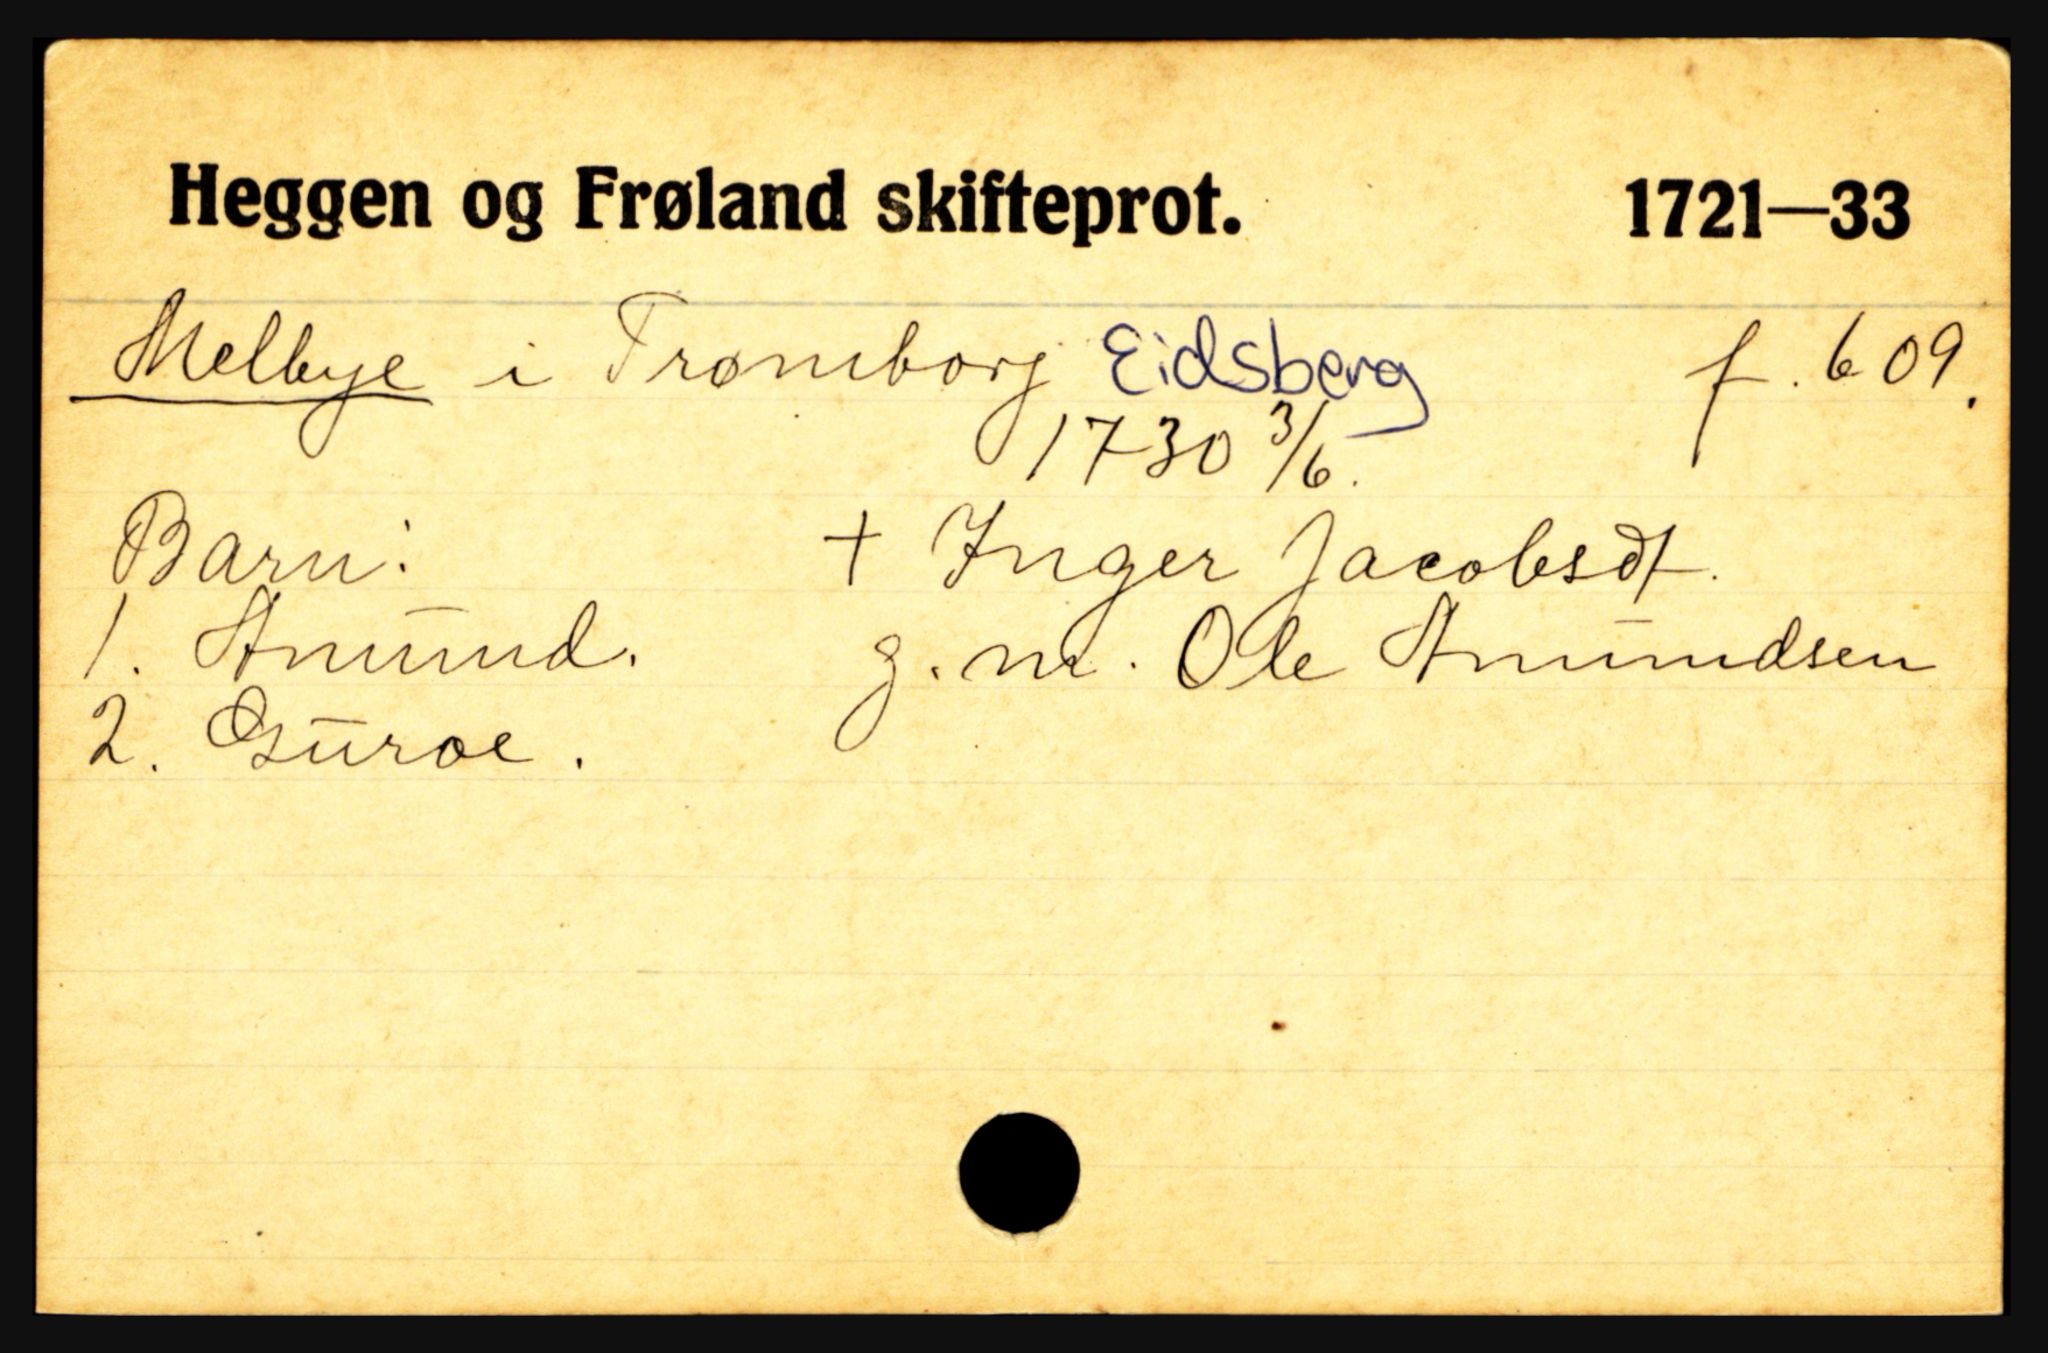 Heggen og Frøland skifteprot. 1721—33
Melbye i Trømborg Eidsberg f. 609.
1730 3/6.
Barn: + Inger Jacobsdt.
1. Amund. g. m. Ole Amundsen
2. Guroe.